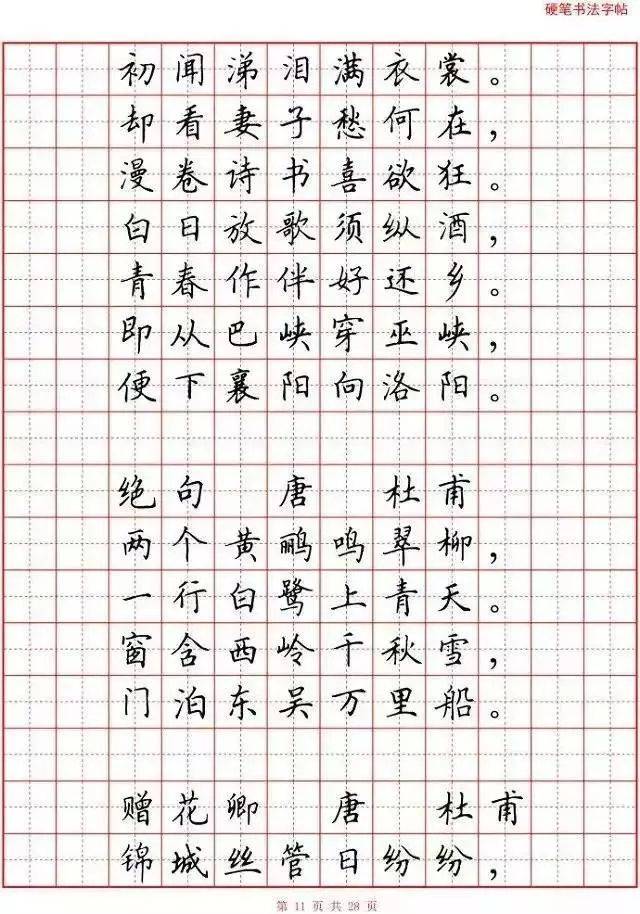 硬笔书法字帖
初闻涕泪满衣裳。
却看妻子愁何在，
漫卷诗书喜欲狂。
白日放歌须纵酒，
青春作伴好还乡。
即从巴峡穿巫峡，
便下襄阳向洛阳。
绝句 唐 杜甫
两个黄鹂鸣翠柳，
一行白鹭上青天。
窗含西岭千秋雪，
门泊东吴万里船。
赠花卿 唐 杜甫
锦城丝管日纷纷，
第 11 页 共 28 页